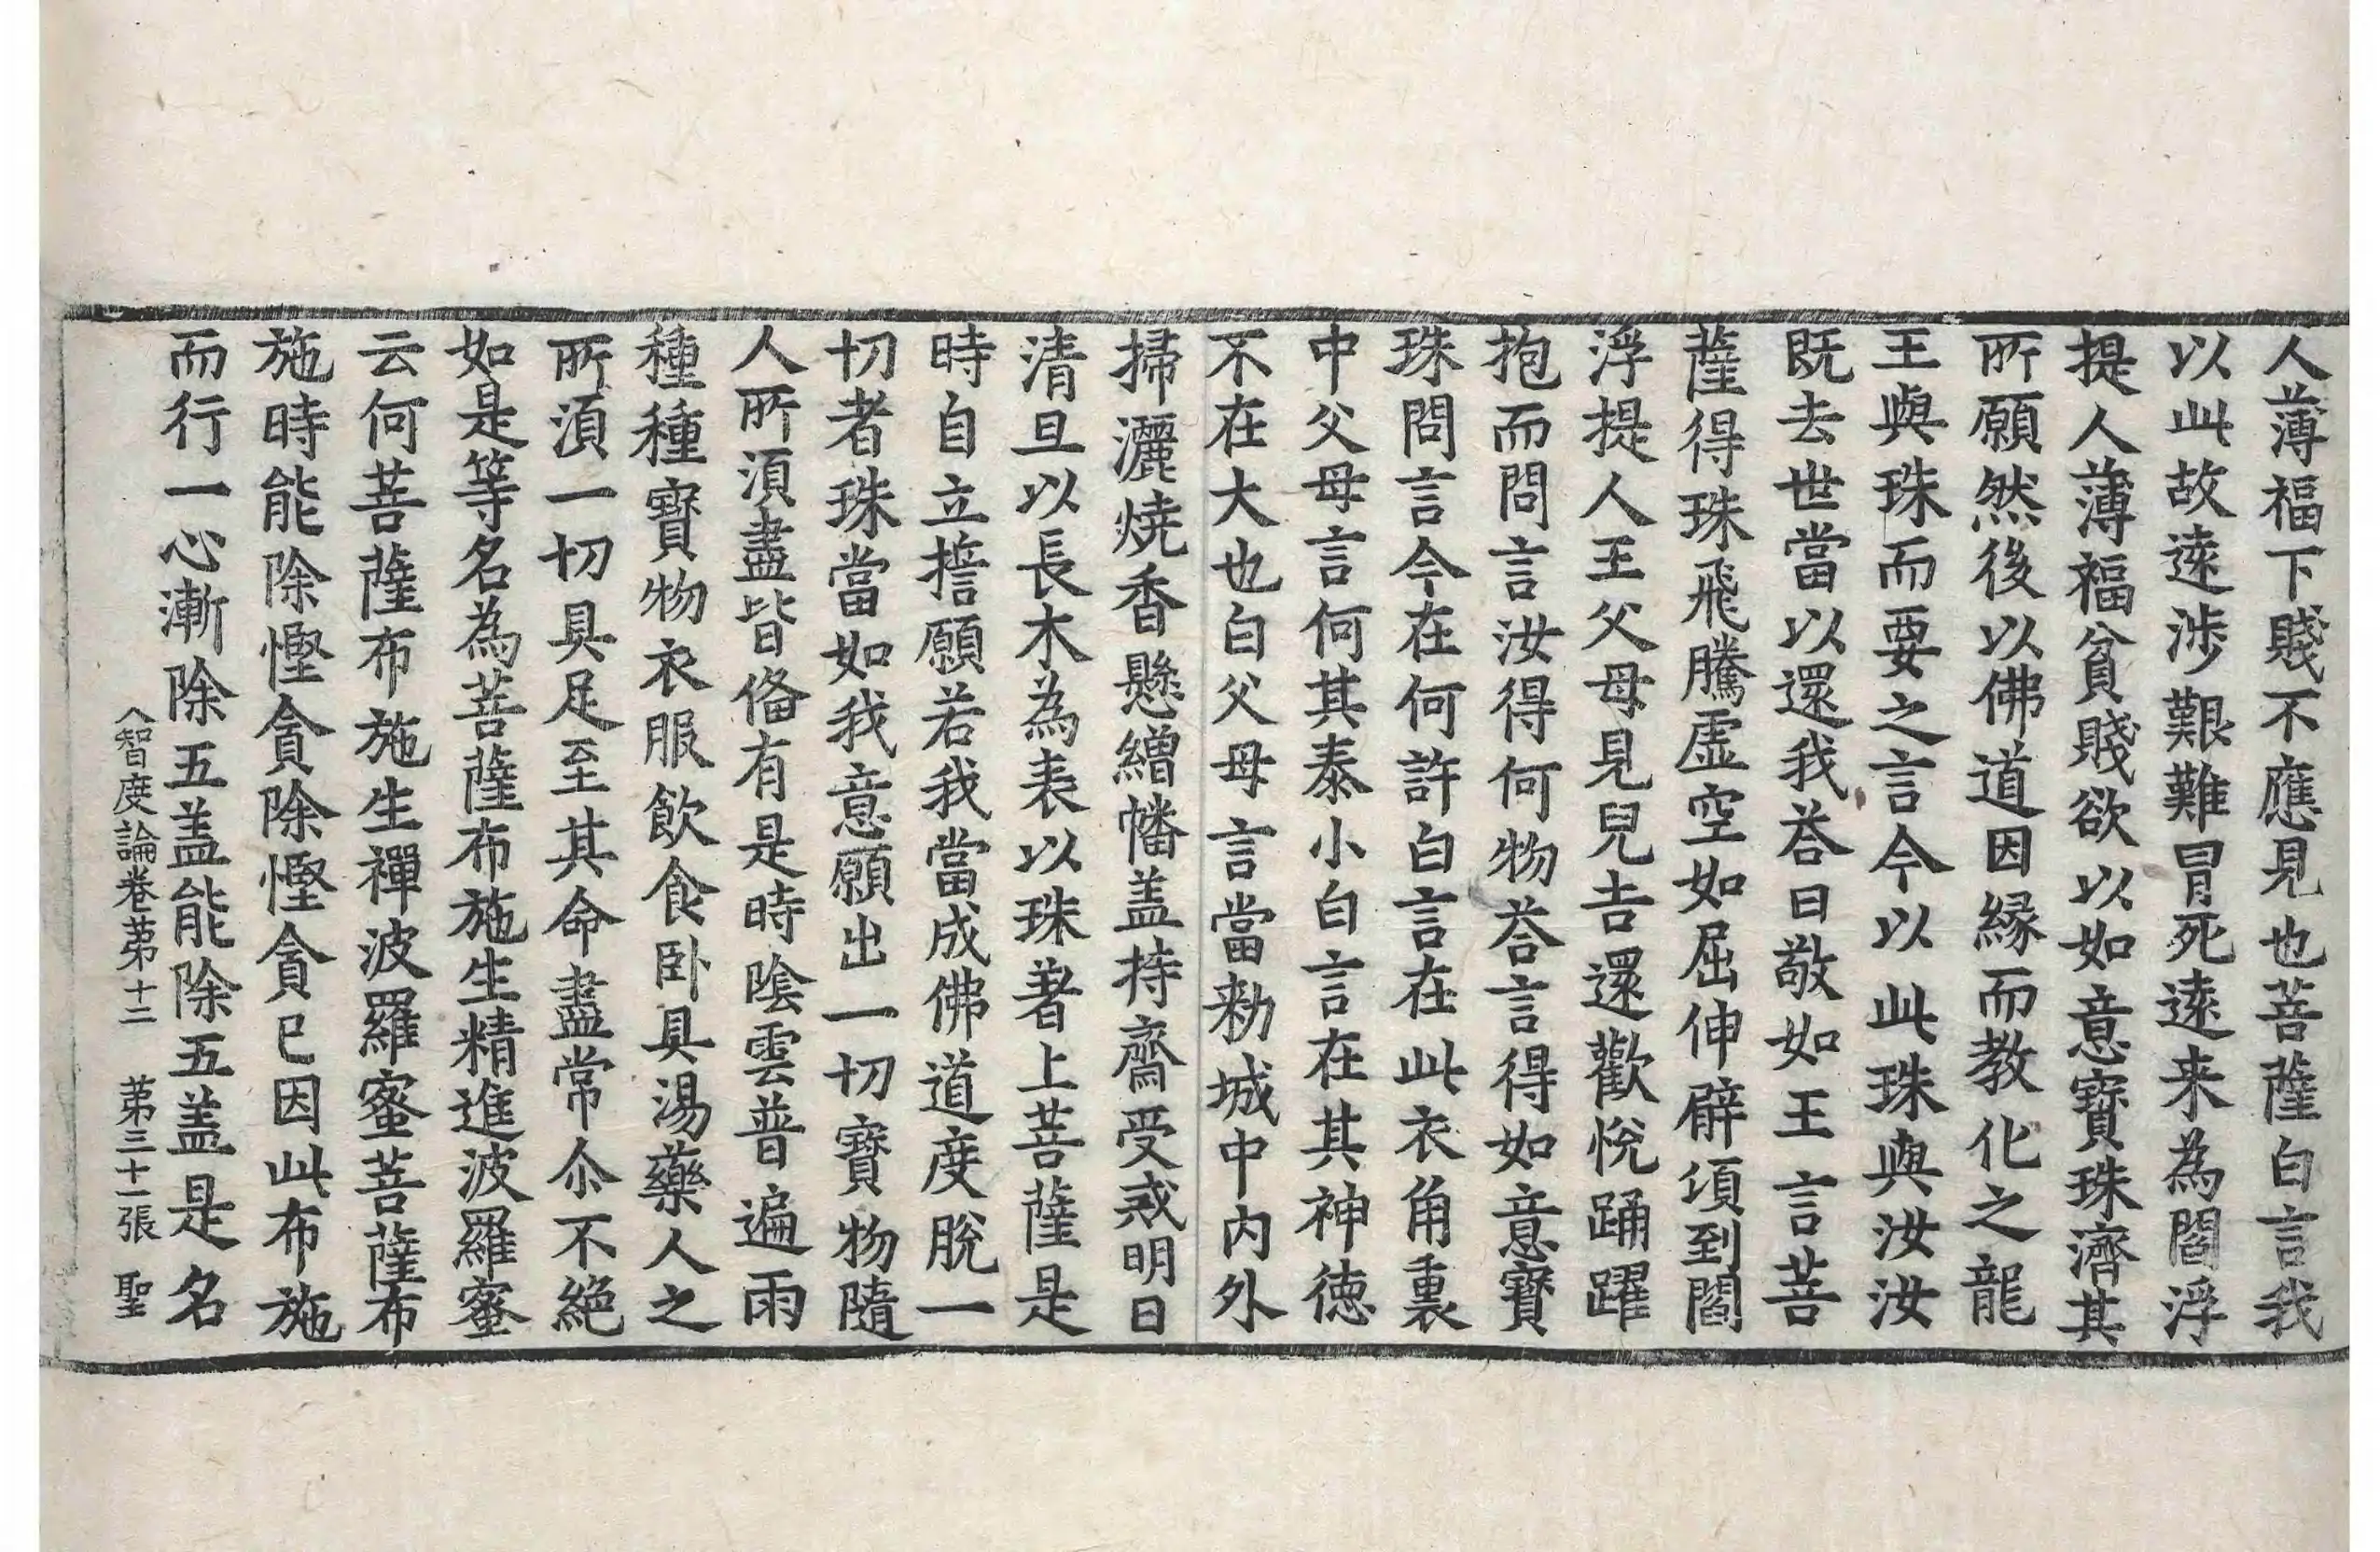 人薄福下賤不應見也菩薩白言我
以此故遠涉艱難冒死遠来為閻浮
提人薄福貧賤欲以如意寶珠濟其
所願然後以佛道因緣而教化之龍
王與珠而要之言今以此珠與汝汝
既去世當以還我荅曰敬如王言菩
薩得珠飛騰虛空如屈伸臂頃到閻
浮提人王父母見兒吉還歡悅踊躍
抱而問言汝得何物荅言得如意寶
珠問言今在何許白言在此衣角裏
中父母言何其泰小白言在其神德
不在大也白父母言當勑城中內外
掃灑燒香懸繒幡盖持齋受戒明日
清旦以長木為表以珠著上菩薩是
時自立誓願若我當成佛道度脫一
切者珠當如我意願出一切寶物隨
人所須盡皆俻有是時陰雲普遍雨
種種寶物衣服飲食卧具湯藥人之
所須一切具足至其命盡常尒不絕
如是等名為菩薩布施生精進波羅蜜
云何菩薩布施生禪波羅蜜菩薩布
施時能除慳貪除慳貪已因此布施
而行一心漸除五盖能除五盖是名
大智度論卷苐十二　苐三十一張　聖